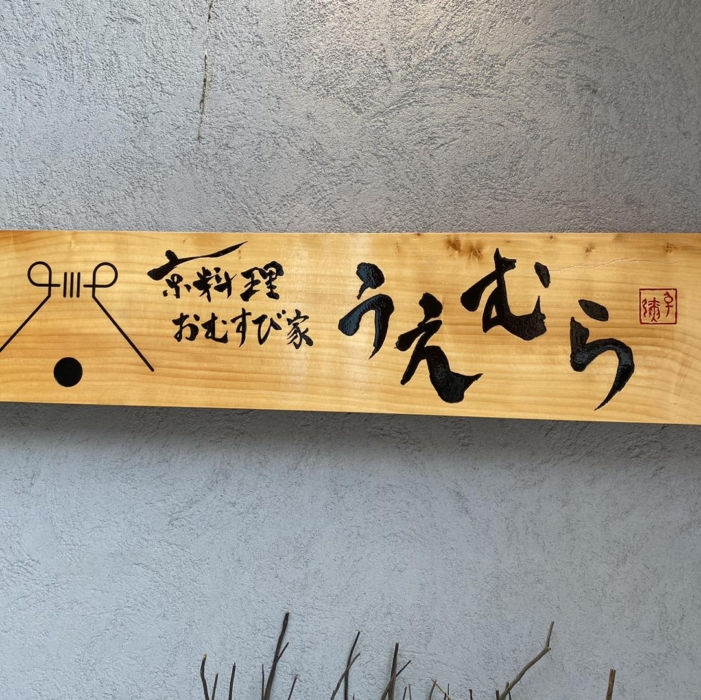 京料理
おむすび家
うえむら